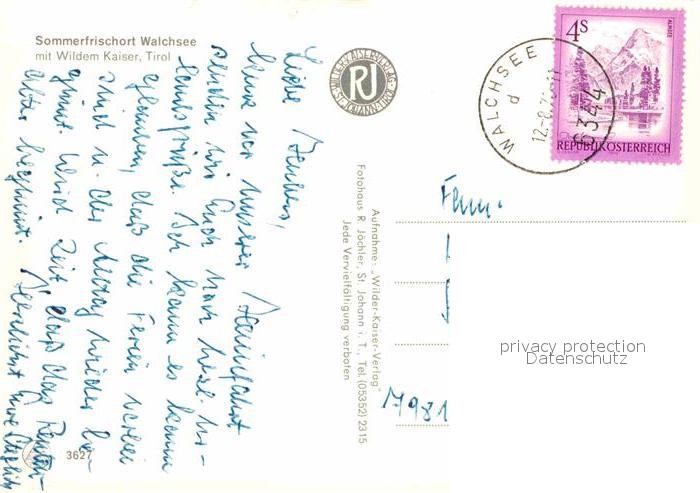 Sommerfrischort Walchsee
mit Wildem Kaiser, Tirol
Liebe
kurz vor unserer Heimfahrt
senden wir Euch noch herzl. Ur-
laubsgrüße. Ich kann es kaum
glauben, daß die Ferien vorbei
sind u. der Alltag wieder be-
ginnt. Wird Zeit daß das Rentner-
alter beginnt.
Herzlichst Eure
3627
WILDER-KAISER-VERLAG
ST. JOHANN TIROL
RJ
Aufnahme: „Wilder-Kaiser-Verlag"
Fotohaus R. Jöchler, St. Johann i. T., Tel. (05352) 2315
Jede Vervielfältigung verboten
WALCHSEE
d
12.-8.
6344
4S
ALMSEE
REPUBLIK ÖSTERREICH
Fam.
7981
privacy protection
Datenschutz